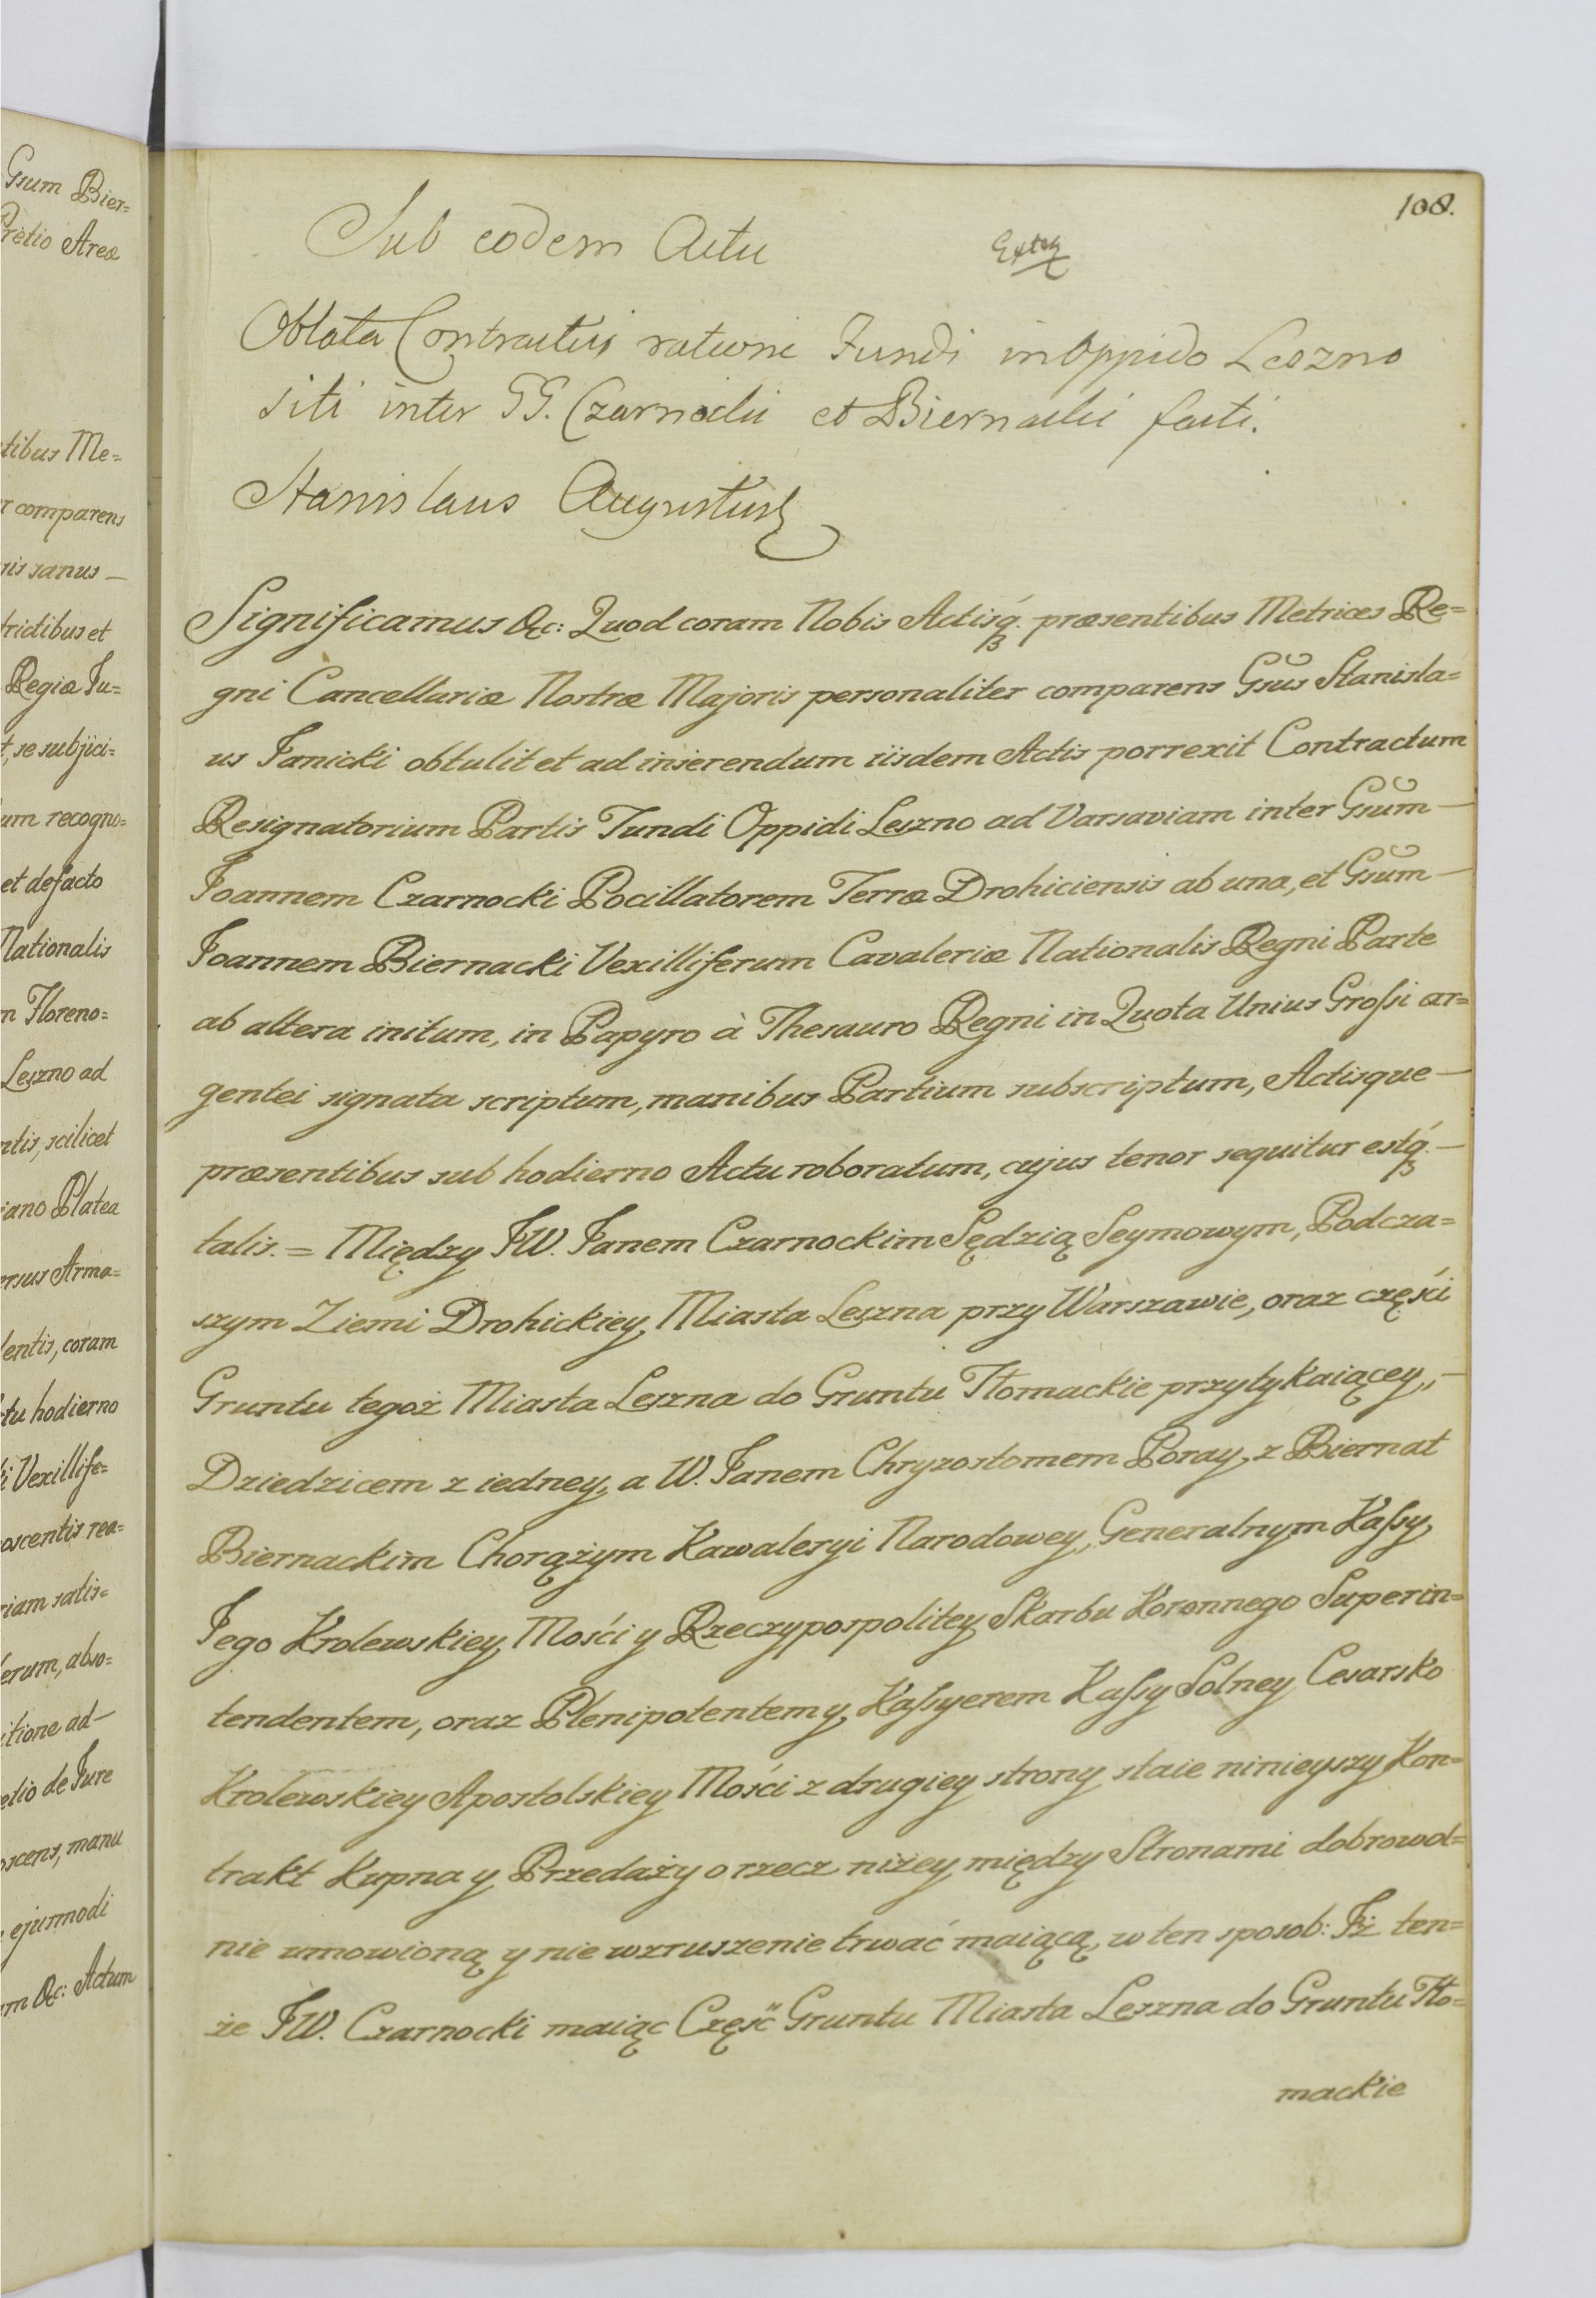 Gsum Bier=
Pretio Areæ
tibus Me=
r comparens
ris sanus —
trictibus et
Regiæ Ju=
t, se subjici=
um recogno=
et defacto
Nationalis
m Floreno=
Leszno ad
ntis, scilicet
iano Platea
ersus Arma=
lentis, coram
tu hodierno
i Vexillife=
oscentis rea=
riam satis=
erum, abso=
itione ad —
etio de Jure
oscens, manu
ejusmodi
m &c: Actum
108.
Sub eodem Actu
Oblata Contractus ratione Fundi in Oppido Leszno
siti inter GG. Czarnocki et Biernacki facti.
Stanislaus Augustus
Significamus &c: Quod coram Nobis Actisq. præsentibus Metrices Re=
gni Cancellariæ Nostræ Majoris personaliter comparens Gsus Stanisla=
us Janicki obtulit et ad inserendum iisdem Actis porrexit Contractum
Resignatorium Partis Fundi Oppidi Leszno ad Varsaviam inter Gsum —
Joannem Czarnocki Pocillatorem Terræ Drohiciensis ab una, et Gsum —
Joannem Biernacki Vexilliferum Cavaleriæ Nationalis Regni Parte
ab altera initum, in Papyro à Thesauro Regni in Quota Unius Grossi ar=
gentei signata scriptum, manibus Partium subscriptum, Actisque —
præsentibus sub hodierno Actu roboratum, cujus tenor sequitur estq. —
talis. = Między JW. Janem Czarnockim Sędzią Seymowym, Podcza=
szym Ziemi Drohickiey, Miasta Leszna przy Warszawie, oraz części
Gruntu tegoż Miasta Leszna do Gruntu Tłomackie przytykaiącey, —
Dziedzicem z iedney, a W. Janem Chryzostomem Poray, z Biernat
Biernackim Chorążym Kawaleryi Narodowey, Generalnym Kassy
Jego Krolewskiey Mości y Rzeczypospolitey Skarbu Koronnego Superin=
tendentem, oraz Plenipotentem y Kassyerem Kassy Solney Cesarsko
Krolewskiey Apostolskiey Mości z drugiey strony staie ninieyszy Kon=
trakt Kupna y Przedaży o rzecz niżey między Stronami dobrowol=
nie umowioną y nie wzruszenie trwać maiącą, w ten sposob: Jż ten=
że JW. Czarnocki maiąc Część Gruntu Miasta Leszna do Gruntu Tło=
mackie